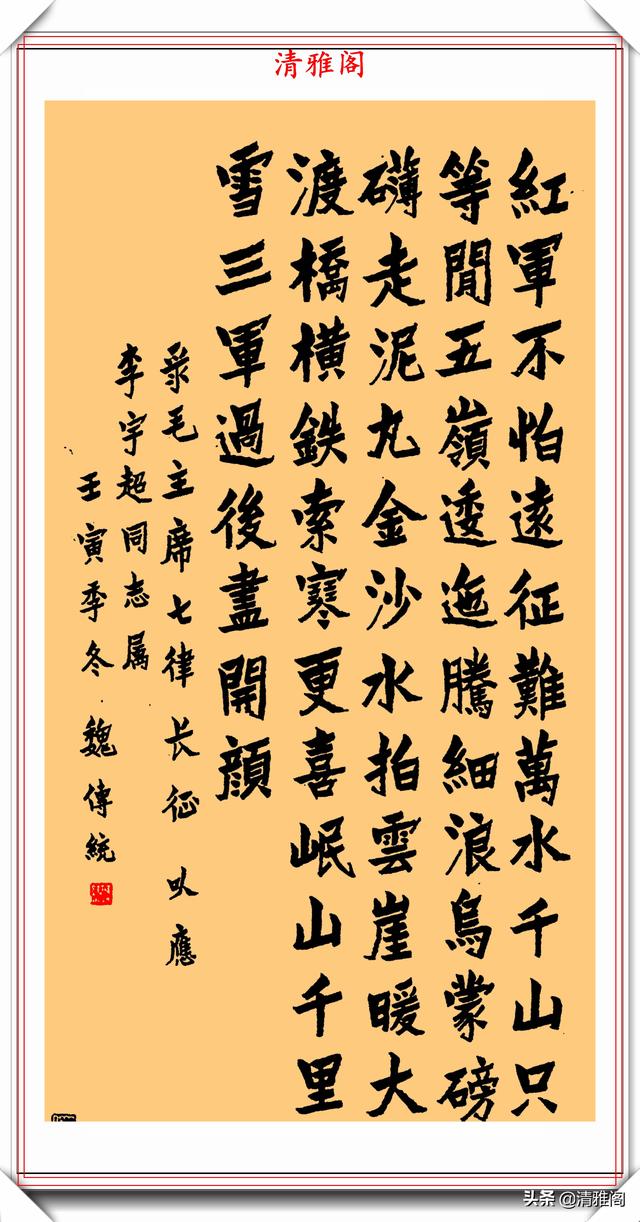 清雅阁
紅軍不怕遠征難萬水千山只
等閒五嶺逶迤騰細浪烏蒙磅
礴走泥丸金沙水拍雲崖暖大
渡橋橫鉄索寒更喜岷山千里
雪三軍過後盡開顔
录毛主席七律长征以應
李宇超同志属
壬寅季冬魏傳統
头条@清雅阁